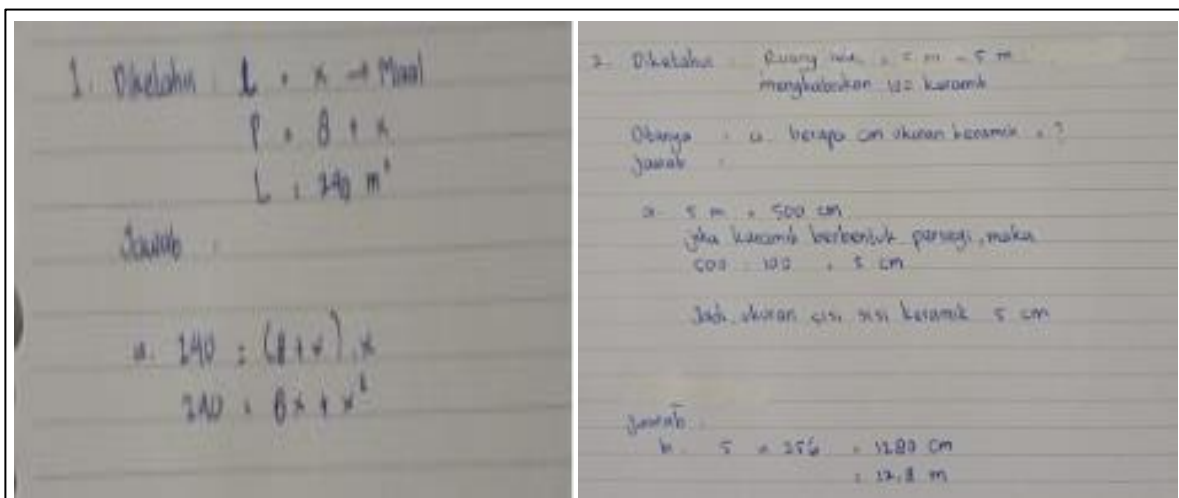 1. Diketahui : L = x → Misal
P = 8 + x
L = 240 m²
Jawab :
a. 240 = (8 + x) . x
240 = 8x + x²
2. Diketahui : Ruang = 5 m × 5 m
menghabiskan 100 keramik
Ditanya : a. berapa cm ukuran keramik = ?
Jawab :
a. 5 m = 500 cm
jika keramik berbentuk persegi, maka
500 : 100 = 5 cm
Jadi, ukuran sisi sisi keramik 5 cm
Jawab :
b. 5 × 256 = 1280 cm
= 12,8 m